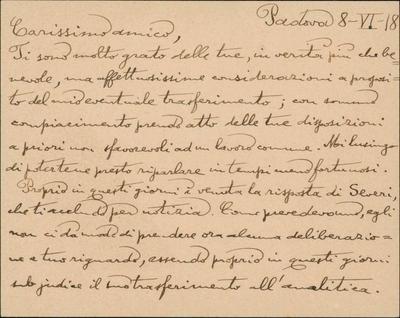 Padova 8-VI-18
Carissimo amico,
Ti sono molto grato delle tue, in verità più che be=
nevole, ma affettuosissime considerazioni a proposi=
to del mio eventuale trasferimento; con sommo
compiacimento prendo atto delle tue disposizioni
a priori non sfavorevoli ad un lavoro comune. Mi lusingo
di potertene presto riparlare in tempi meno fortunosi.
Proprio in questi giorni è venuta la risposta di Severi,
che ti accludo per notizia. Come prevedevamo, egli
non ci dà modo di prendere ora alcuna deliberazio=
ne a tuo riguardo, essendo proprio in questi giorni
sub judice il suo trasferimento all'analitica.